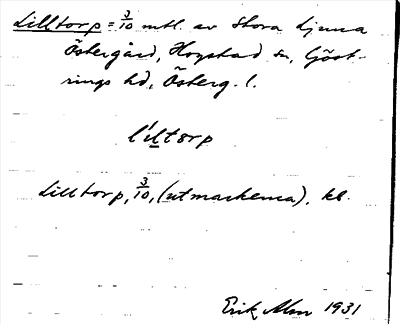 Lilltorp = 3/10 mtl. av Stora Ljuna
Östergård, Hogstad sn, Göst-
rings hd, Österg. l.
l'iltorp
Lilltorp, 3/10, (utmarkerna), kl.
Erik Alm 1931